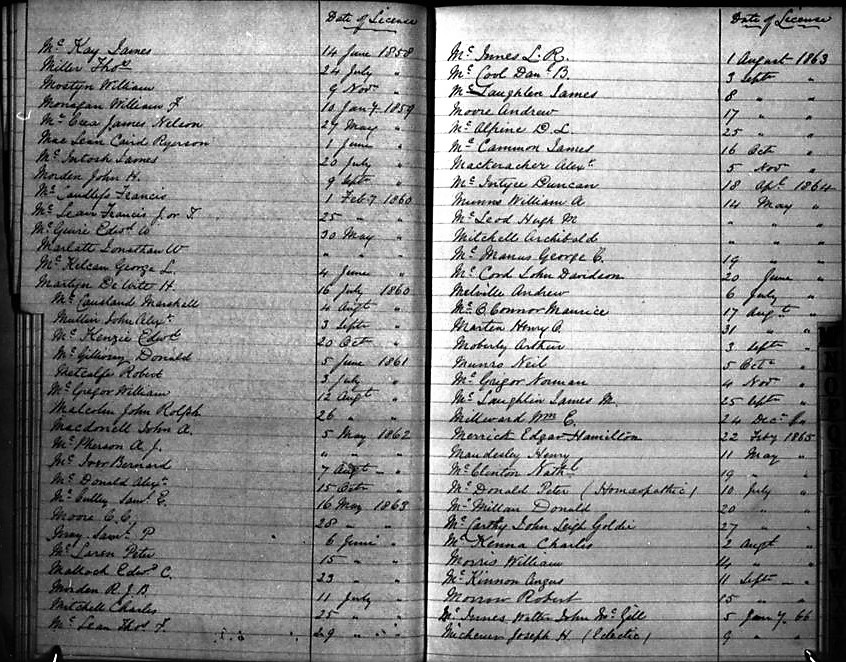 Date of License
Mc Kay James 14 June 1858
Miller Thos 24 July "
Mostyn William 9 Novr "
Monagan William F. 10 Jany 1859
James Nelson 27 May "
Mac Lean Caird Ryerson 1 June "
Mc Intosh James 20 July "
Morden John H. 9 Septr "
Francis 1 Feby 1860
Mc Lean Francis J. or T. 25 " "
Mc Guire Edwd W 30 May "
Marlatt Jonathan W " " "
Mc Kelcan George L. 4 June "
Martyn De Witt H. 16 July 1860
Mc Causland Marshall 4 Augt "
Mullin John Alexr 3 Septr "
Mc Kenzie Edwd 20 Octr "
Mc Gillivray Donald 5 June 1861
Metcalfe Robert 3 July "
Mc Gregor William 12 Augt "
Malcolm John Rolph 26 " "
Macdonell John A. 5 May 1862
Mc Pherson A. J. " " "
Mc Ivor Bernard 7 Augt "
Mc Donald Alexr 15 Octr "
Mc Culley Saml E. 16 May 1863
Moore C. C. 28 " "
May Saml P 6 June "
Mc Laren Peter 15 " "
Malloch Edwd C. 23 " "
Morden R. J. B. 11 July "
Mitchell Charles 25 " "
Mc Lean Thos F. 29 " "
Date of License
Mc Innes L. R. 1 August 1863
Mc Cool Danl B. 3 Septr "
Mc Laughlin James 8 " "
Moore Andrew 17 " "
Mc Alpine D. L. 25 " "
Mc Cammon James 16 Octr "
Mackeracher Alexr 5 Novr "
Mc Intyre Duncan 18 Apl 1864
Munns William A 14 May "
Mc Leod Hugh M " " "
Mitchell Archibald " " "
Mc Manus George C. 19 " "
Mc Cord John Davidson 20 June "
Melville Andrew 6 July "
Mc O'Connor Maurice 17 Augt "
Martin Henry A 31 " "
Moberly Arthur 3 Septr "
Munro Neil 5 Octr "
Mc Grigor Norman 4 Novr "
Mc Laughlin James M. 25 Septr "
Millward Wm C. 24 Decr "
Merrick Edgar Hamilton 22 Feby 1865
Maudesley Henry 11 May "
Mc Clinton Nathl 19 " "
Mc Donald Peter (Homœopathic) 10 July "
Mc Millan Donald 20 " "
Mc Carthy John Leigh Goldie 27 " "
Mc Kenna Charles 2 Augt "
Morris William 14 " "
Mc Kinnon Angus 11 Septr "
Morrow Robert 15 " "
Mc Innes Walter John Mc Gill 5 Jany 66
Michener Joseph H. (Eclectic) 9 " "